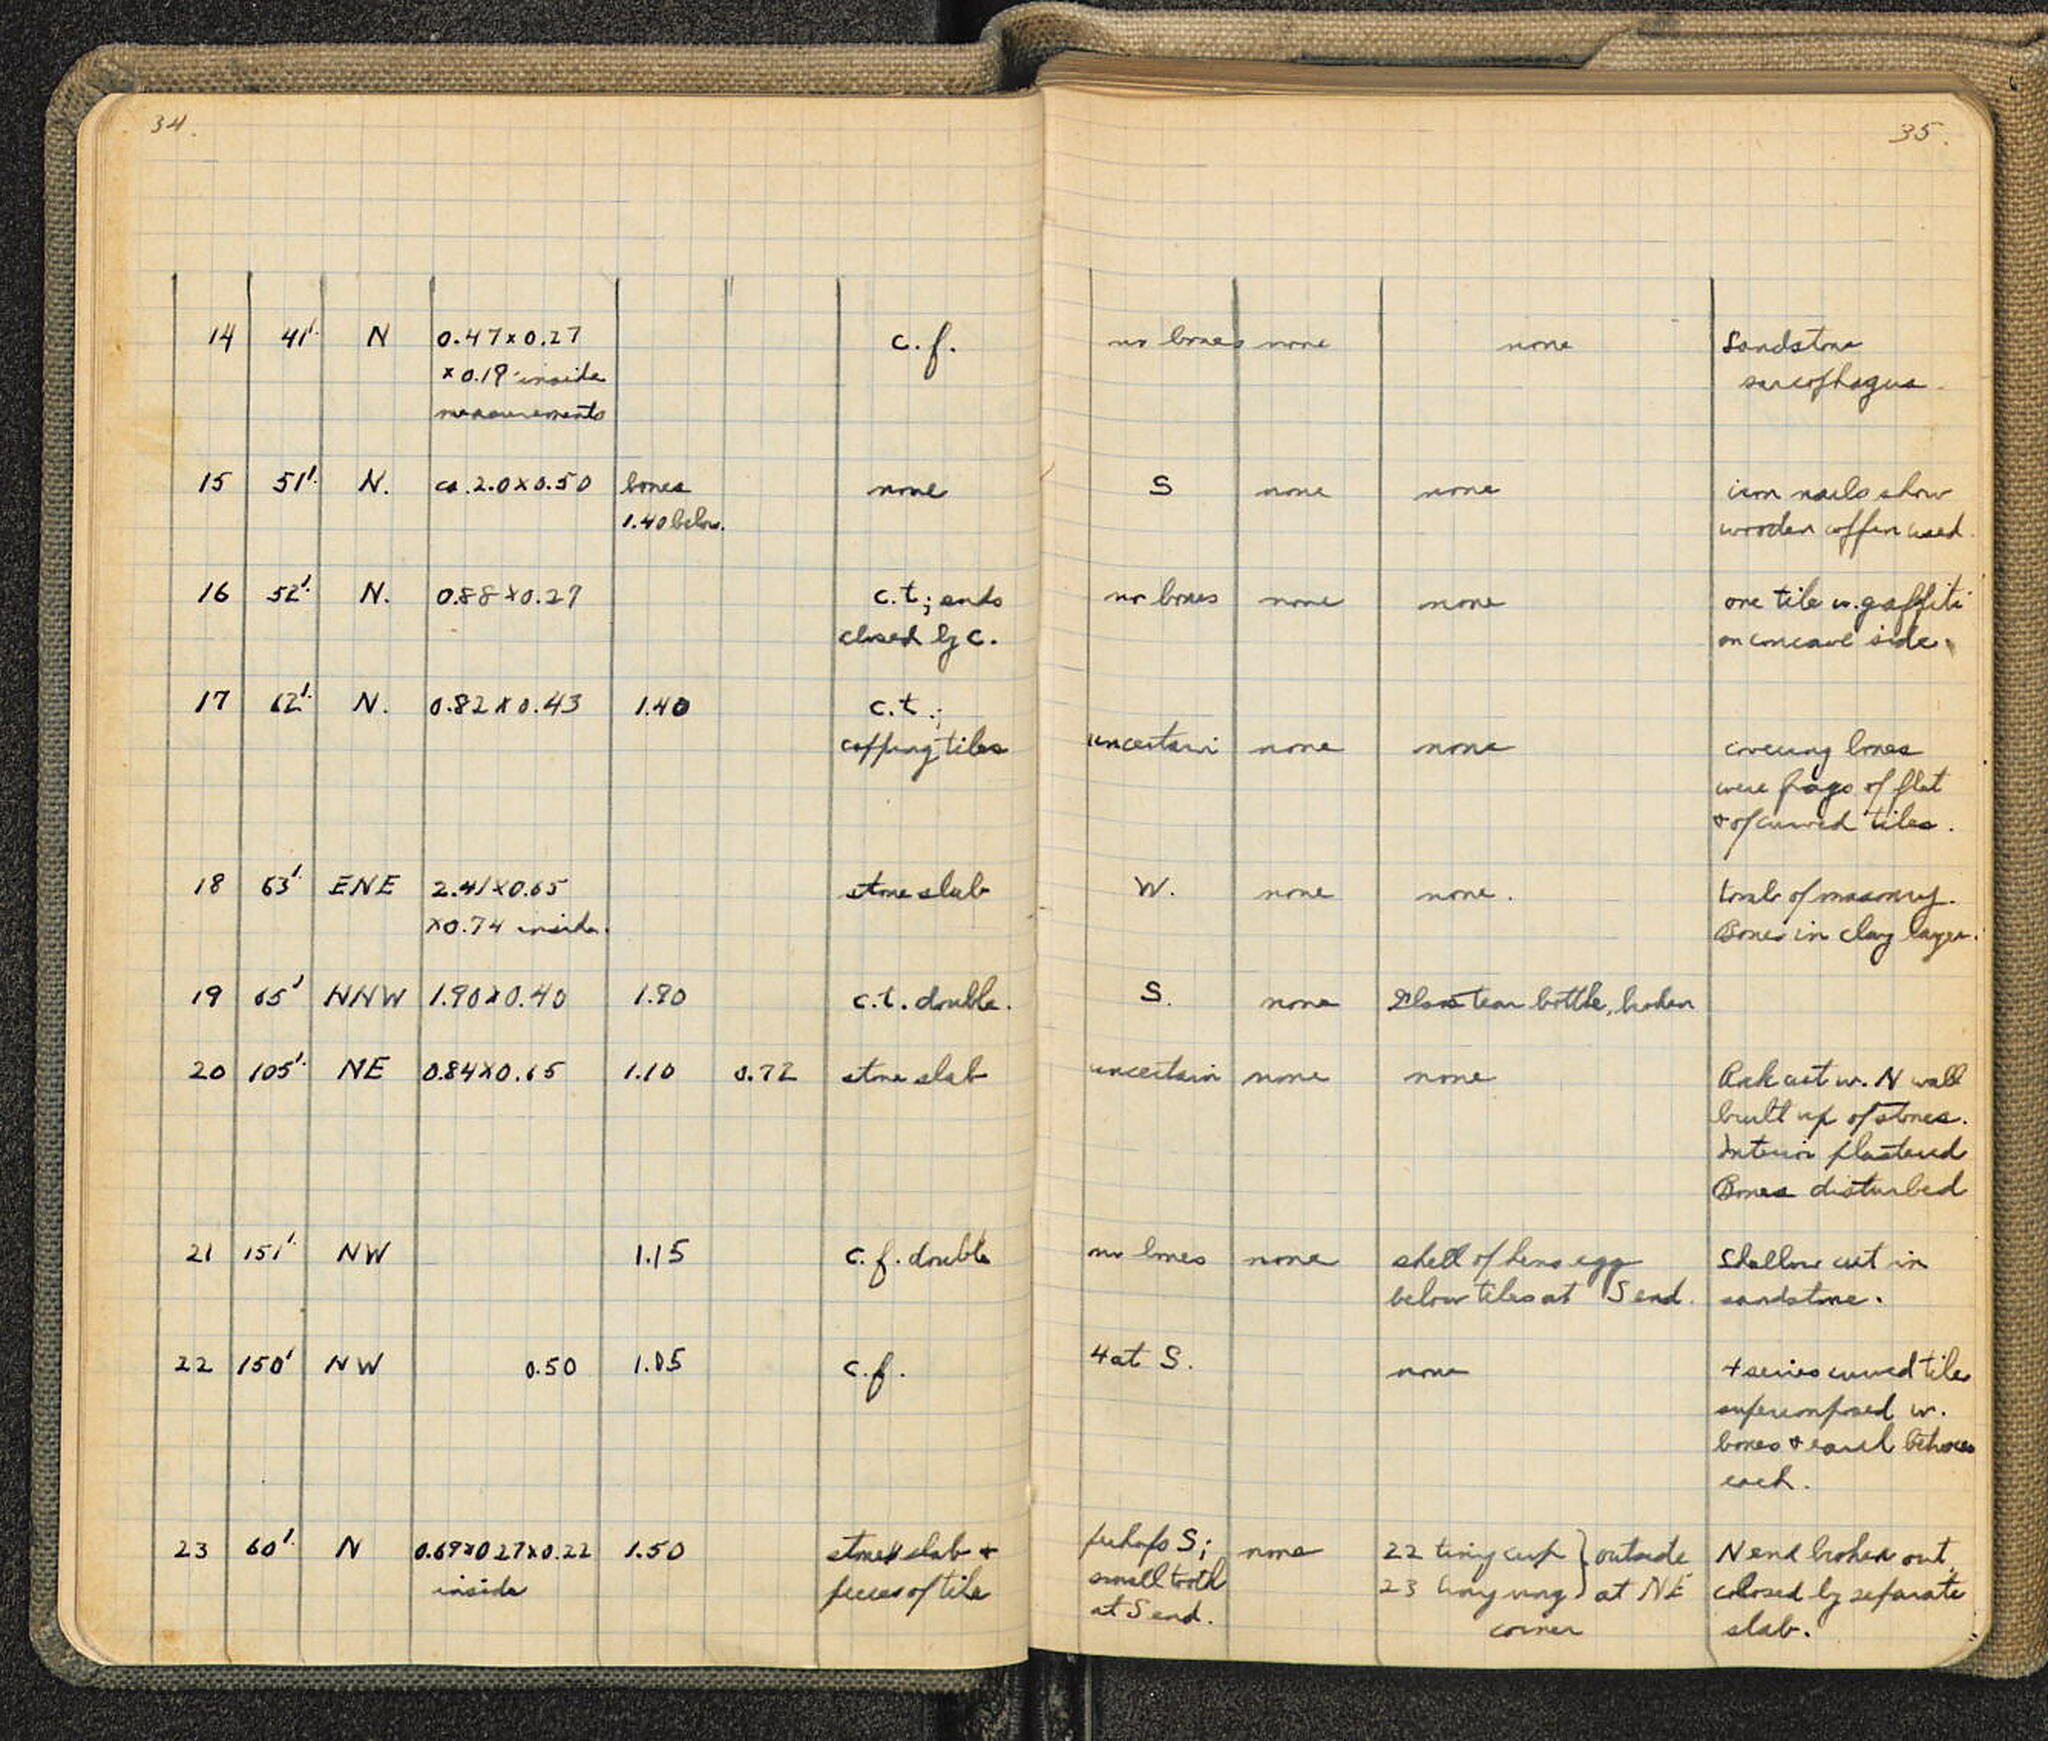 34.
14 41'. N 0.47 x 0.27 c.f.
x 0.19 inside
measurements
15 51'. N. ca. 2.0 x 0.50 bones none
1.40 below.
16 52'. N. 0.88 x 0.27 c.t.; ends
closed by c.
17 62'. N. 0.82 x 0.43 1.40 c.t.;
capping tiles
18 63'. ENE 2.41 x 0.65 stone slab
x 0.74 inside.
19 65' NNW 1.90 x 0.40 1.80 c.t. double.
20 105'. NE 0.84 x 0.65 1.10 0.72 stone slab
21 151'. NW 1.15 c.f. double
22 150' NW 0.50 1.05 c.f.
23 60'. N 0.69 x 0.27 x 0.22 1.50 stone slab +
inside pieces of tile
35.
no bones none none Sandstone
sarcophagus.
S none none iron nails show
wooden coffin used.
no bones none none one tile w. gaffiti
on concave side.
uncertain none none covering bones
were frags of flat
+ of curved tiles.
W. none none. tomb of masonry.
Bones in clay layer.
S. none Glass tear bottle, broken
uncertain none none Rock cut w. N wall
built up of stones.
Interior plastered
Bones disturbed
no bones none shell of hens egg Shallow cut in
below tiles at S end. sandstone.
4 at S. none 4 series curved tiles
superimposed w.
bones + earth between
each.
perhaps S; none 22 tiny cup } outside N end broken out,
small tooth 23 bronze ring } at NE closed by separate
at S end. corner slab.